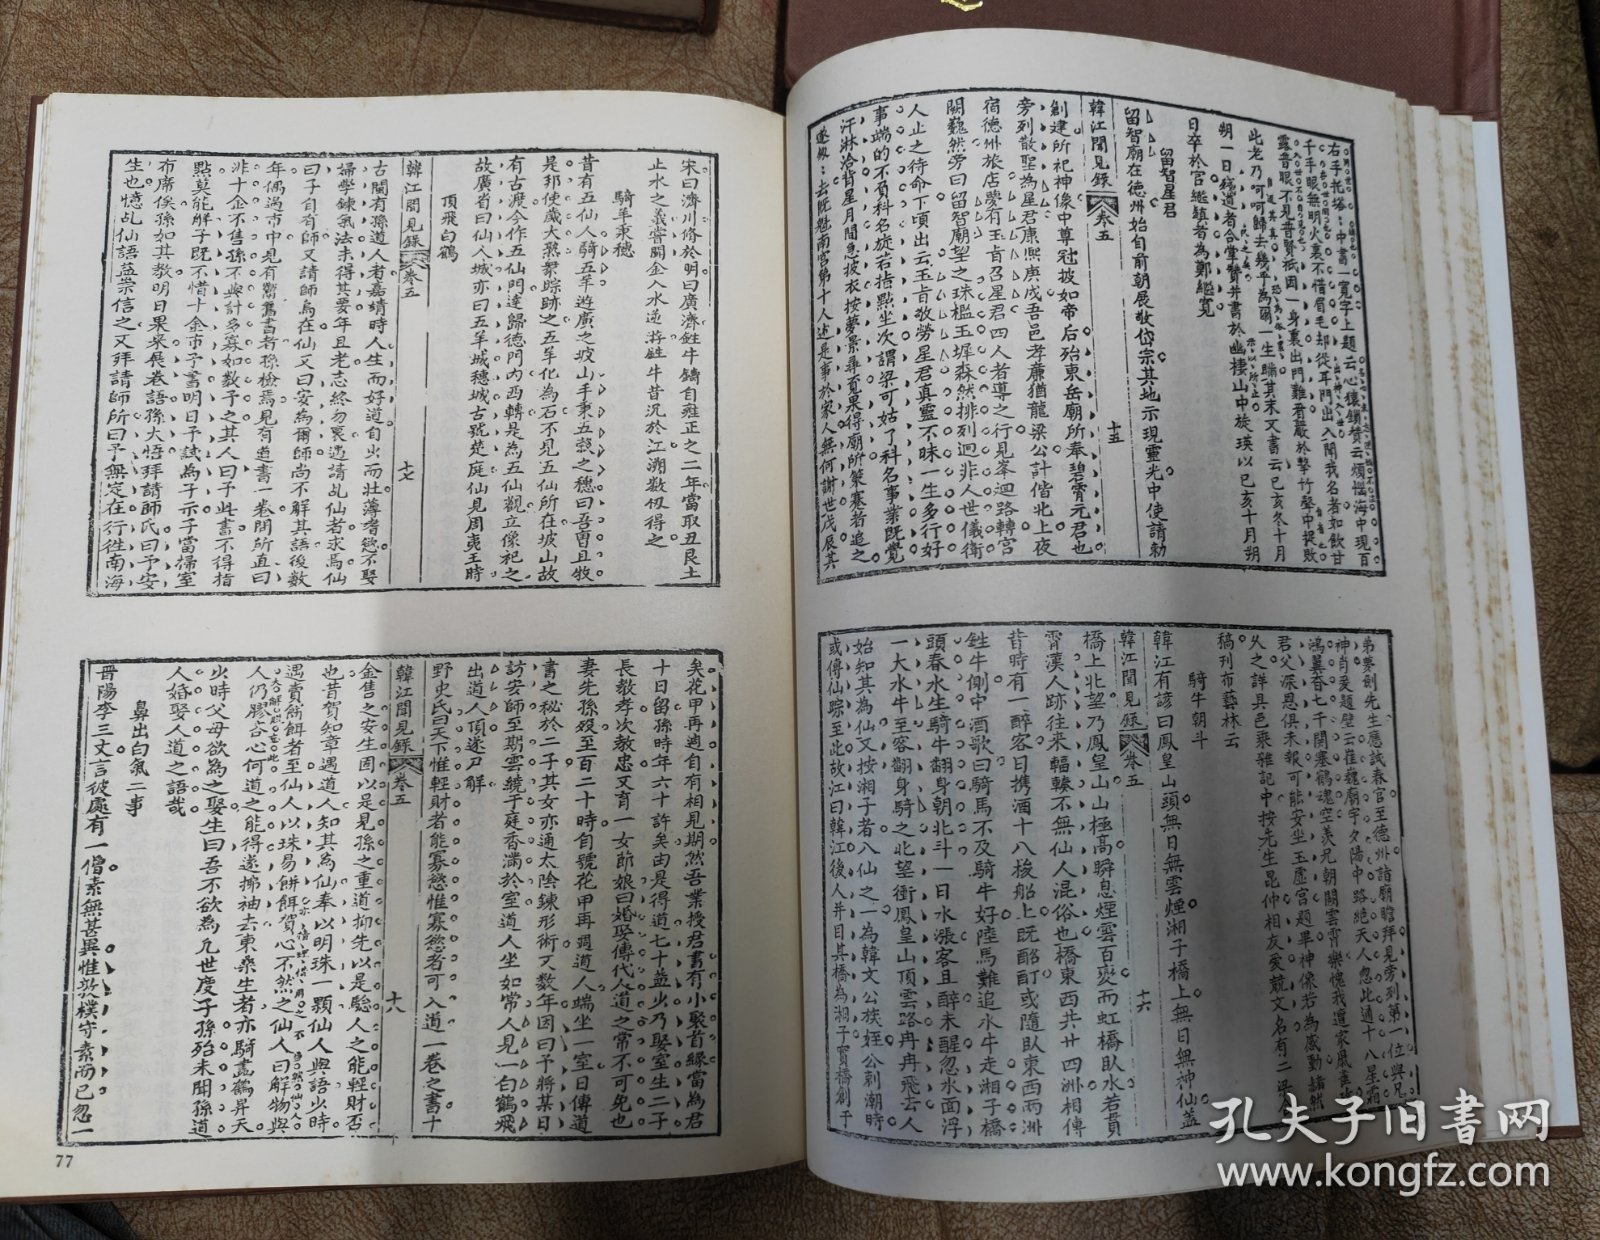 此老乃呵呵歸去幾乎為爾一生瞞其末又書云己亥冬十月
朔一日
日卒於官繼鎮者為鄭繼寬
留智星君
留智廟在德州始自前朝展敬岱宗其地示現靈光中使請勅
韓江聞見錄 卷五 十五
創建所祀神像中尊冠披如帝后殆東岳廟所奉碧霄元君也
旁列散聖為星君康熙庚戌吾邑孝廉猶龍梁公計偕北上夜
宿德州旅店夢有玉旨召星君四人者導之行見峯迴路轉宮
闕巍然旁曰留智廟望之珠檻玉墀森然排列迥非人世儀衛
人止之待命下頃出云玉旨敬勞星君真靈不昧一生多行好
事端的不負科名旋若指點坐次謂梁可姑了科名事業既覺
汗淋洽背星月間急披衣按夢景尋覓果得廟所策蹇者追之
弟夢劍先生應試春官至德州詣廟瞻拜見旁列第一位與兄
君父深恩俱未報可能安坐玉虛宮題畢神像若為感動
久之詳具邑乘雜記中按先生昆仲相友愛競文名有二梁
稿刊布藝林云
騎牛朝斗
韓江有諺曰鳳皇山頭無日無雲煙湘子橋上無日無神仙蓋
韓江聞見錄 卷五 十六
橋上北望乃鳳皇山山極高瞬息煙雲百變而虹橋臥水若貫
霄漢人跡往來輻輳不無仙人混俗也橋東西共廿四洲相傳
昔時有一醉客日携酒十八梭船上既酩酊或隨臥東西兩洲
鉎牛側中酒歌曰騎馬不及騎牛好陸馬難追水牛走湘子橋
頭春水生騎牛翻身朝北斗一日水漲客且醉未醒忽水面浮
一大水牛至客翻身騎之北望衝鳳皇山頂雲路冉冉飛去人
始知其為仙又按湘子者八仙之一為韓文公族姪公刺潮時
或傳仙踪至此故江曰韓江後人并目其橋為湘子實橋創于
宋曰濟川脩於明曰廣濟鉎牛鑄自雍正之二年當取丑艮土
止水之義嘗鬭金入水遂游鉎牛昔沉於江溯數仅得之
騎羊秉穗
昔有五仙人騎五羊遊廣之坡山手秉五榖之穗曰吾畱且牧
是邦使歲大熟衆踪跡之五羊化為石不見五仙所在坡山故
有古渡今作五仙門達歸德門內西轉是為五仙觀立像祀之
故廣省曰仙人城亦曰五羊城穗城古號楚庭仙見周夷王時
頂飛白鶴
韓江聞見錄 卷五 十七
古閩有孫道人者嘉靖時人生而好道自少而壯薄耆慾不娶
婦學鍊氣法未得其要年且老志終勿畏遇請乩仙者求焉仙
曰子自有師又請師烏在仙又曰安為爾師尚不解其語後數
年偶過市中見有鬻舊書者孫檢焉見有道書一卷問所直曰
非十金不售孫不與計多寡如數予之其人曰予此書不得指
點莫能解子既不惜十金市予書明日予試為子示子當掃室
布席俟孫如其教明日果來展卷語孫大悟拜請師氏曰予安
生也憶乩仙語益崇信之又拜請師所曰予無定在行徃南海
矣花甲再週自有相見期然吾業授君書有小聚首緣當為君
十日留孫時年六十許矣由是得道七十益少乃娶室生二子
長敬孝次敎忠又育一女節娘曰婚娶傳代人道之常不可免也
妻先孫歿至百二十時自號花甲再週道人端坐一室日傳道
書之秘於二子其女亦通太陰鍊形術又數年因曰予將某日
訪安師至期雲繞于庭香滿於室道人坐如常人見一白鶴飛
出道人頂遂刀解
野史氏曰天下惟輕財者能寡慾惟寡慾者可入道一卷之書十
韓江聞見錄 卷五 十八
金售之安生固以是見孫之重道抑先以是驗人之能輕財否
也昔賀知章遇道人知其為仙奉以明珠一顆仙人與語少時
遇賣餅餌者至仙人以珠易餅餌賀心不然之仙人曰解物與
人仍膠合心何道之能得遂拂袖去東桑生者亦騎畵鶴昇天
少時父母欲為之娶生曰吾不欲為九世度子孫殆未聞孫道
人婚娶人道之語哉
鼻出白氣二事
晋陽李三丈言彼處有一僧素無甚異惟敦樸守素而已忽一
77
孔夫子旧書网
www.kongfz.com